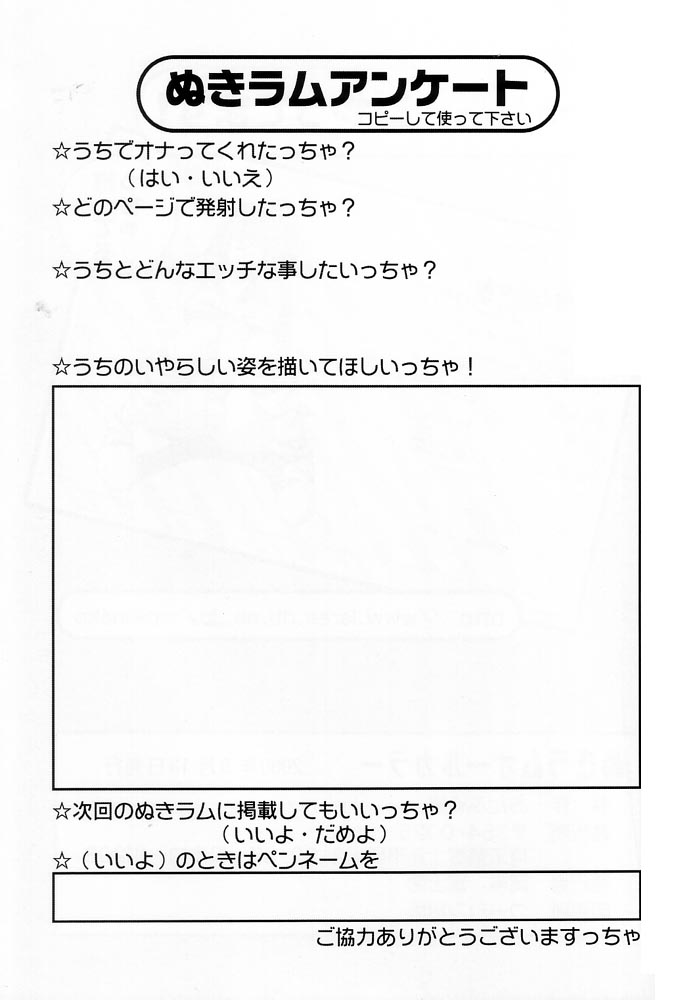 ぬきラムアンケート
コピーして使って下さい
☆うちでオナってくれたっちゃ？
（はい・いいえ）
☆どのページで発射したっちゃ？
☆うちとどんなエッチな事したいっちゃ？
☆うちのいやらしい姿を描いてほしいっちゃ！
☆次回のぬきラムに掲載してもいいっちゃ？
（いいよ・だめよ）
☆（いいよ）のときはペンネームを
ご協力ありがとうございますっちゃ